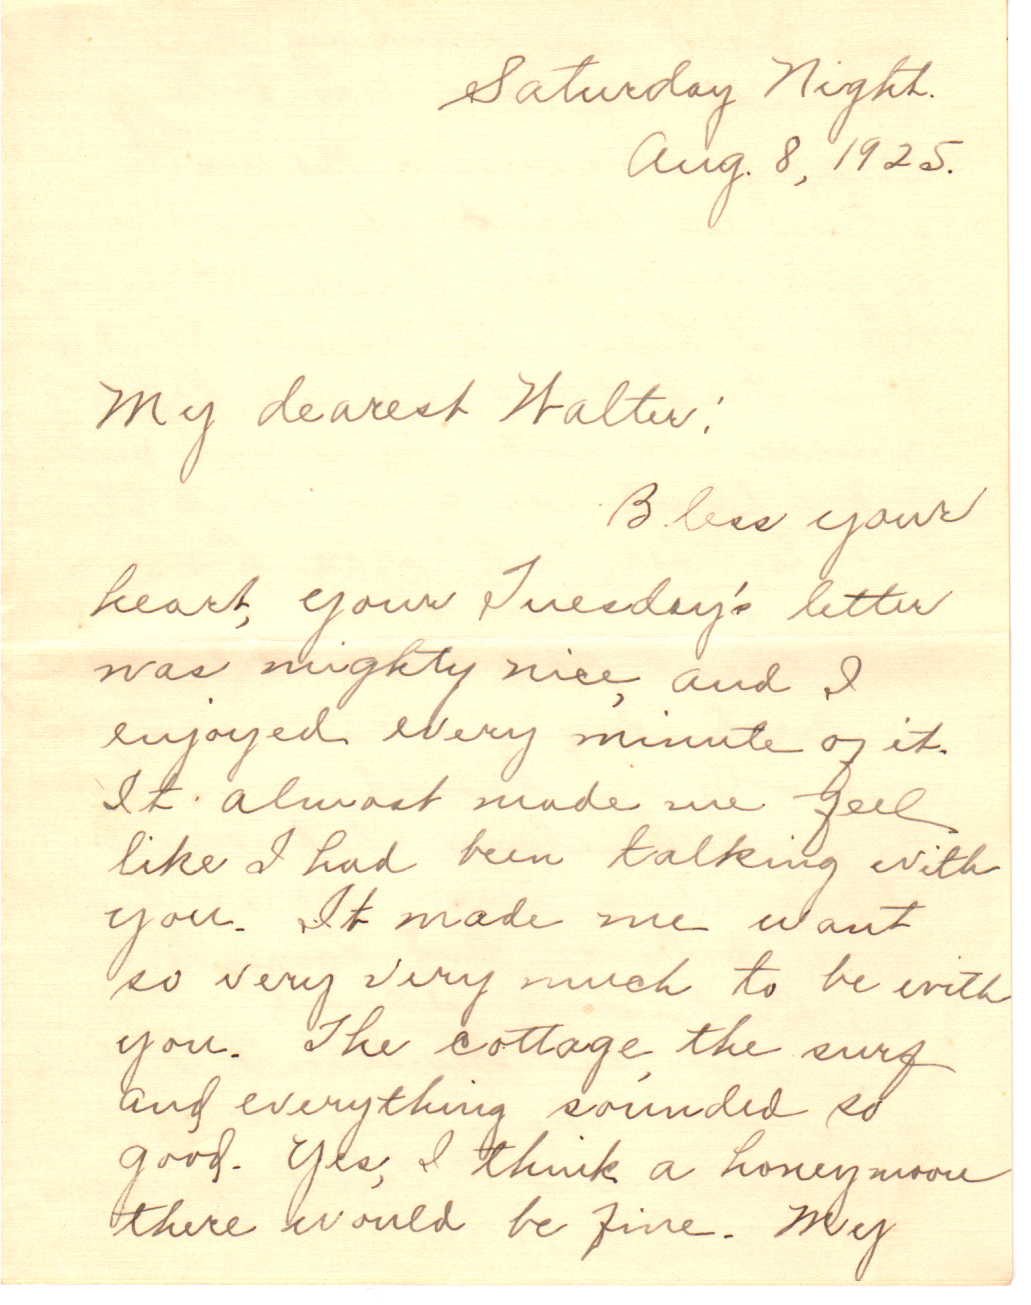 Saturday Night.
Aug. 8, 1925.
My dearest Walter:
Bless your
heart, your Tuesday's letter
was mighty nice, and I
enjoyed every minute of it.
It almost made me feel
like I had been talking with
you. It made me want
so very very much to be with
you. The cottage, the surf
and everything sounded so
good. Yes, I think a honeymoon
there would be fine. My